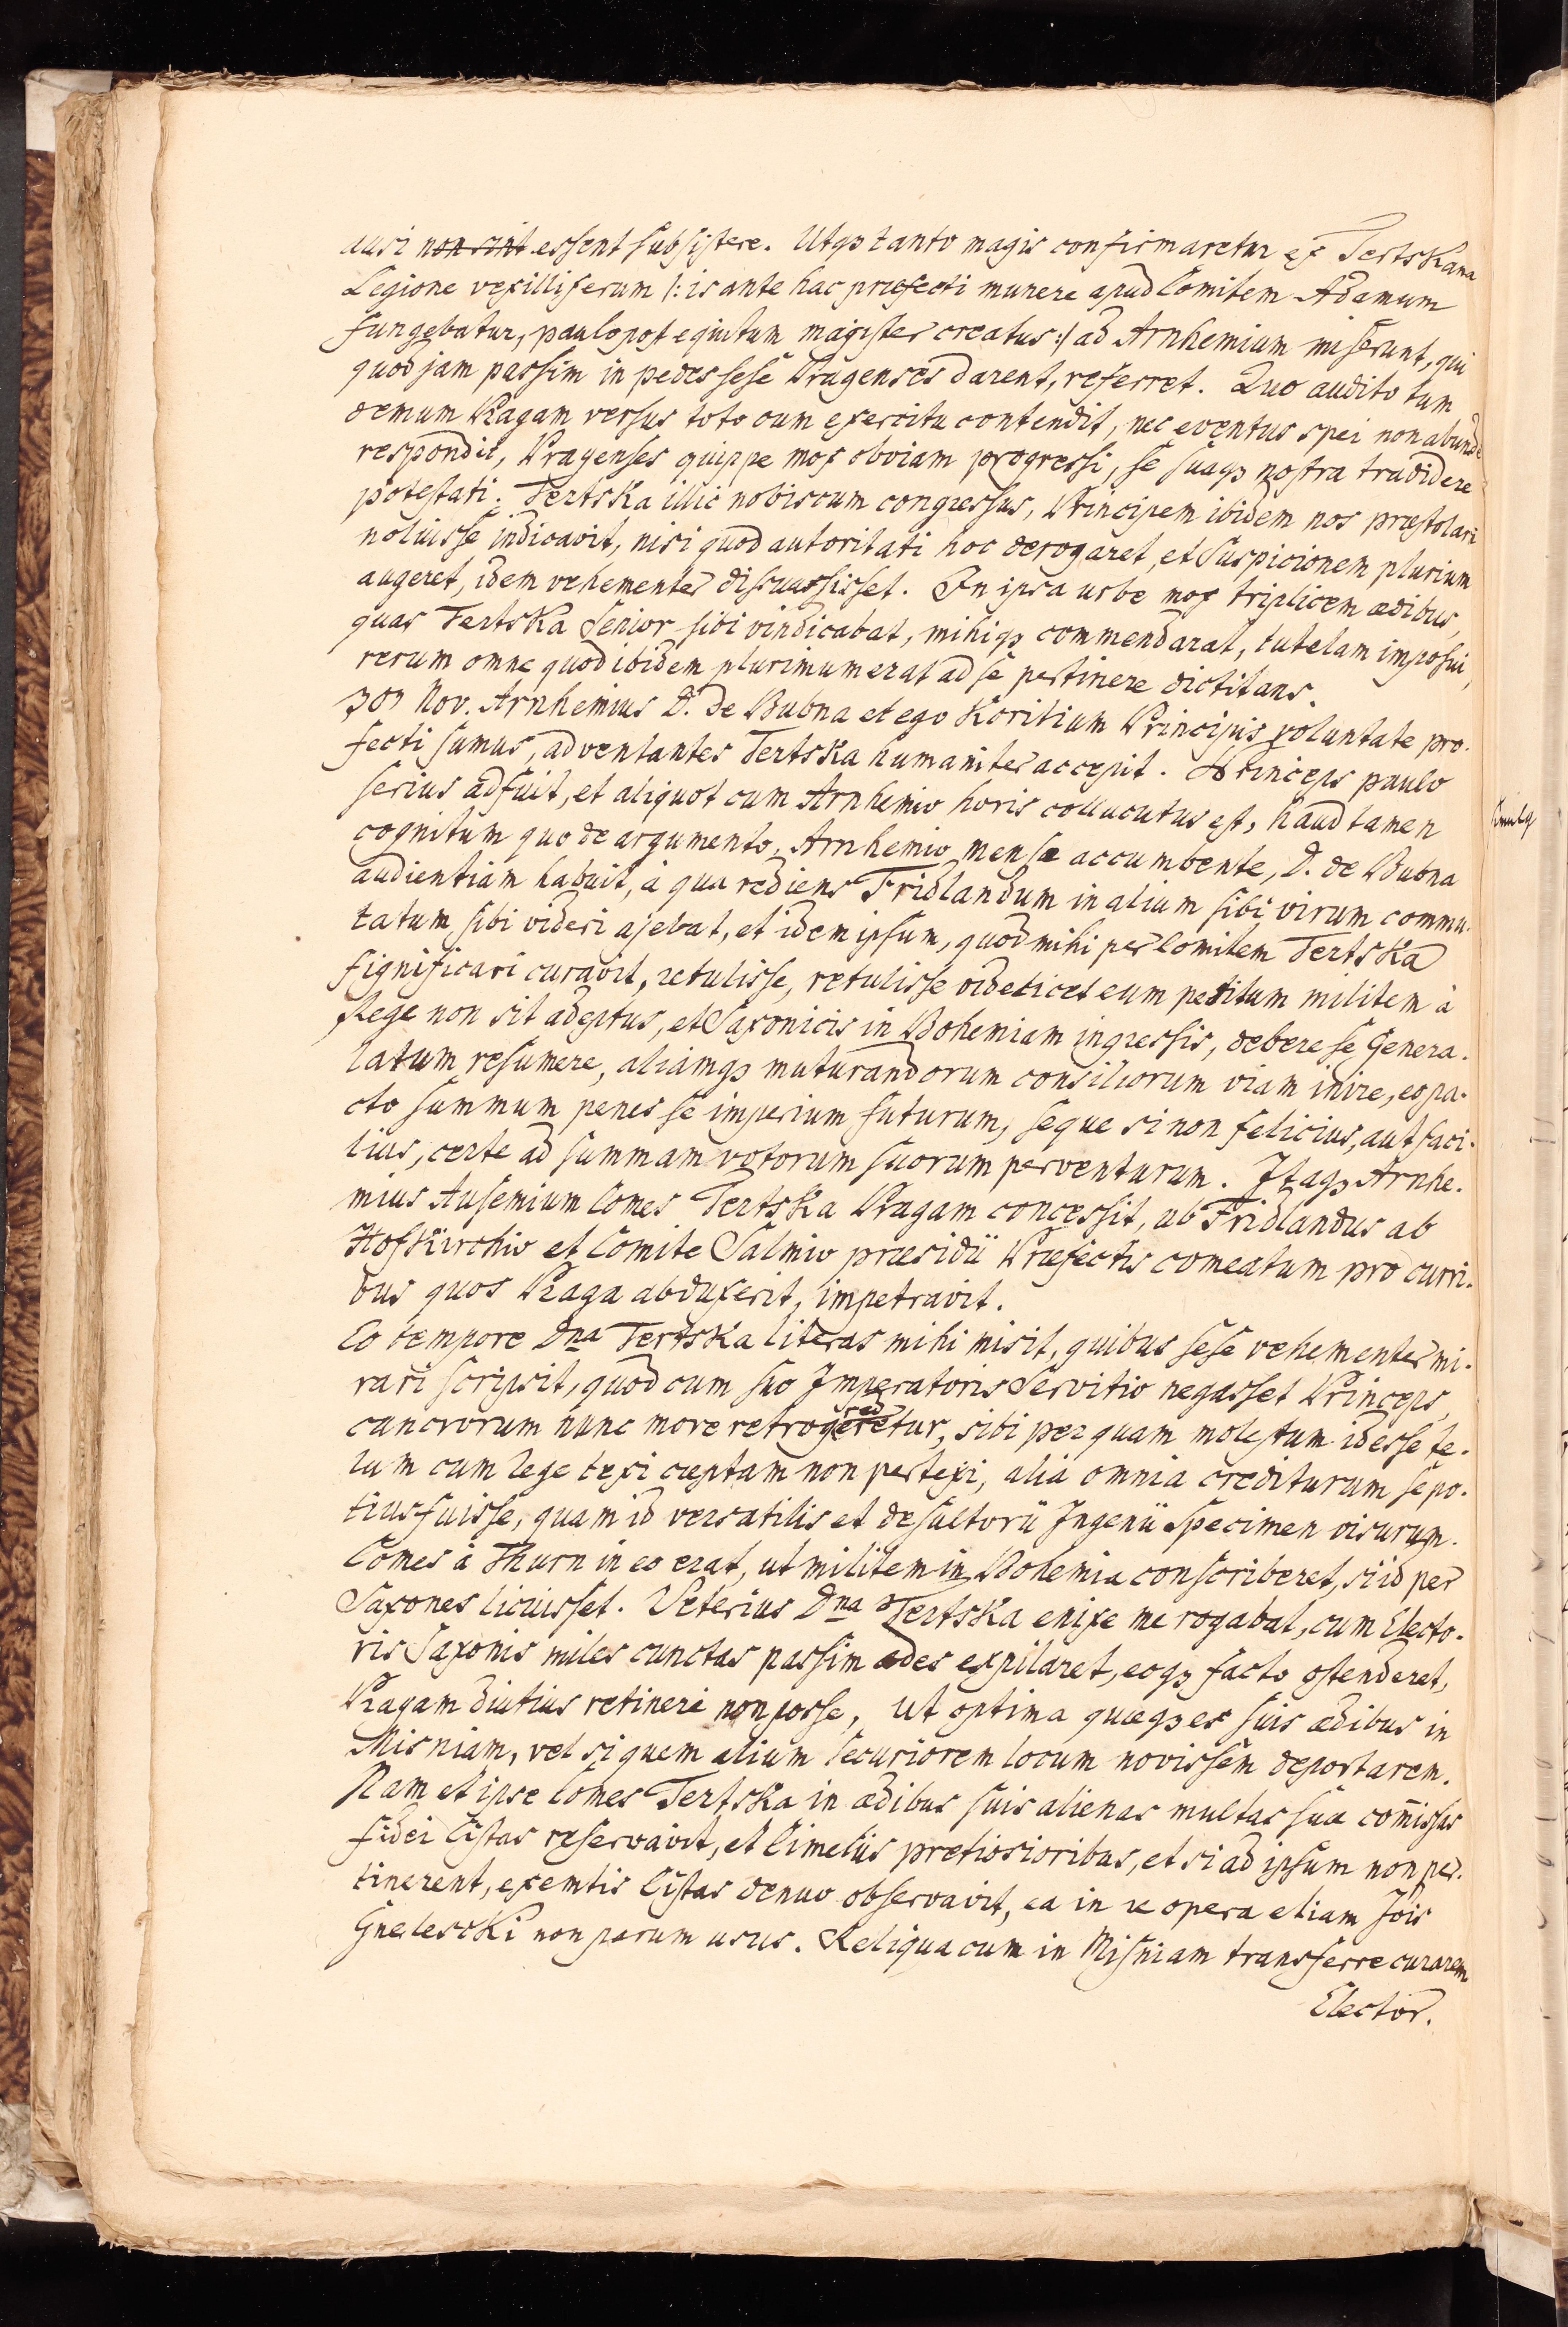 ausi non sint essent subsistere. Utqꝫ tanto magis confirmaretur ex Tertskana
Legione vexilliferum |: is ante hac præfecti munere apud Comitem Adamum
fungebatur, paulo post equitum magister creatus :| ad Arnhemium miserunt, qui
quod jam passim in pedes sese Pragenses darent, referret. Quo audito tum
demum Pragam versus toto cum exercitu contendit, nec eventus spei non abunde
respondit, Pragenses quippe mox obviam progressi, se suaqꝫ nostra tradidere
potestati. Tertska illic nobiscum congressus, Principem ibidem nos præstolari
noluisse indicavit, nisi quod autoritati hoc derogaret, et suspicionem plurium
augeret, idem vehementer discuassisset. In ipsa urbe mox triplicem ædibus,
quas Tertska Senior sibi vindicabat, mihiqꝫ commendarat, tutelam imposui,
rerum omne quod ibidem plurimum erat ad se pertinere dictitans.
Nov. Arnhemius D. de Bubna et ego Koritium Principis voluntate pro-
fecti sumus, adventantes Tertska humaniter accepit. Princeps paulo
serius adfuit, et aliquot cum Arnhemio horis collucutus est, haud tamen
cognitum quo de argumento. Arnhemio mensæ accumbente, D. de Bubna
audientiam habuit, à qua rediens Fridlandum in alium sibi virum commu-
tatum sibi videri ajebat, et idem ipsum, quod mihi per Comitem Tertska
significari curavit, retulisse, retulisse videlicet eum petitum militem à
Rege non sit adeptus, et Saxonicis in Bohemiam ingressis, debere se Genera-
latum resumere, aliamqꝫ maturandorum consiliorum viam inire, eo pa-
cto summum penes se imperium futurum, seque si non felicius, aut faci-
lius, certe ad summam votorum suorum perventurum. Itaqꝫ Arnhe-
mius Ausemium Comes Tertska Pragam concessit, ub Fridlandus ab
Hofkirchio et Comite Salmio præsidii Præfectis comeatum pro curri-
bus quos Praga abduxerit, impetravit.
Eo tempore Dna Tertska literas mihi misit, quibus sese vehementer mi-
rari scripsit, quod cum suo Imperatoris Servitio negasset Princeps,
cancrorum nunc more retrogrederetur, sibi per quam molestum id esse te-
lam cum Rege texi cæptam non pertexi, alia omnia crediturum se po-
tius fuisse, quam id versatilis et desultorii Ingenii Specimen visurum.
Comes à Thurn in eo erat, ut militem in Bohemia conscriberet, si id per
Saxones licuisset. Veterius Dna Tertska enixe me rogabat, cum Electo-
ris Saxonis miles cunctas passim ædes expilaret, eoqꝫ facto ostenderet,
Pragam diutius retineri non posse, ut optima quæqꝫ ex suis ædibus in
Misniam, vel si quem alium securiorem locum novissem deportarem.
Nam et ipse Comes Tertska in ædibus suis alienas multas suæ com̃issas
fidei Cistas reservavit, et Cimeliis pretiosioribus, et si ad ipsum non per-
tinerent, exemtis Cistas denuo observavit, ea in re opera etiam Jois
non parum usus. Reliqua cum in Misniam transferre curarem
Elector.